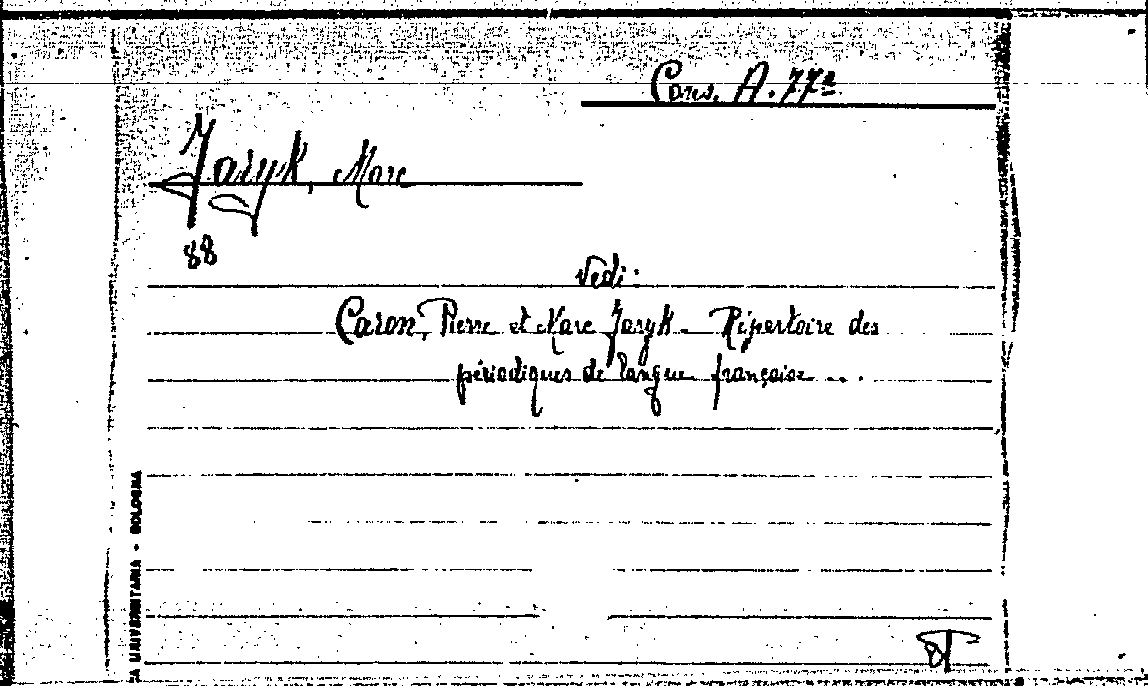 Cons. A. 77ª
Jaryk, Marc
88
Vedi:
Caron, Pierre et Marc Jaryk - Répertoire des
périodiques de langue française ...
CA UNIVERSITARIA - BOLOGNA